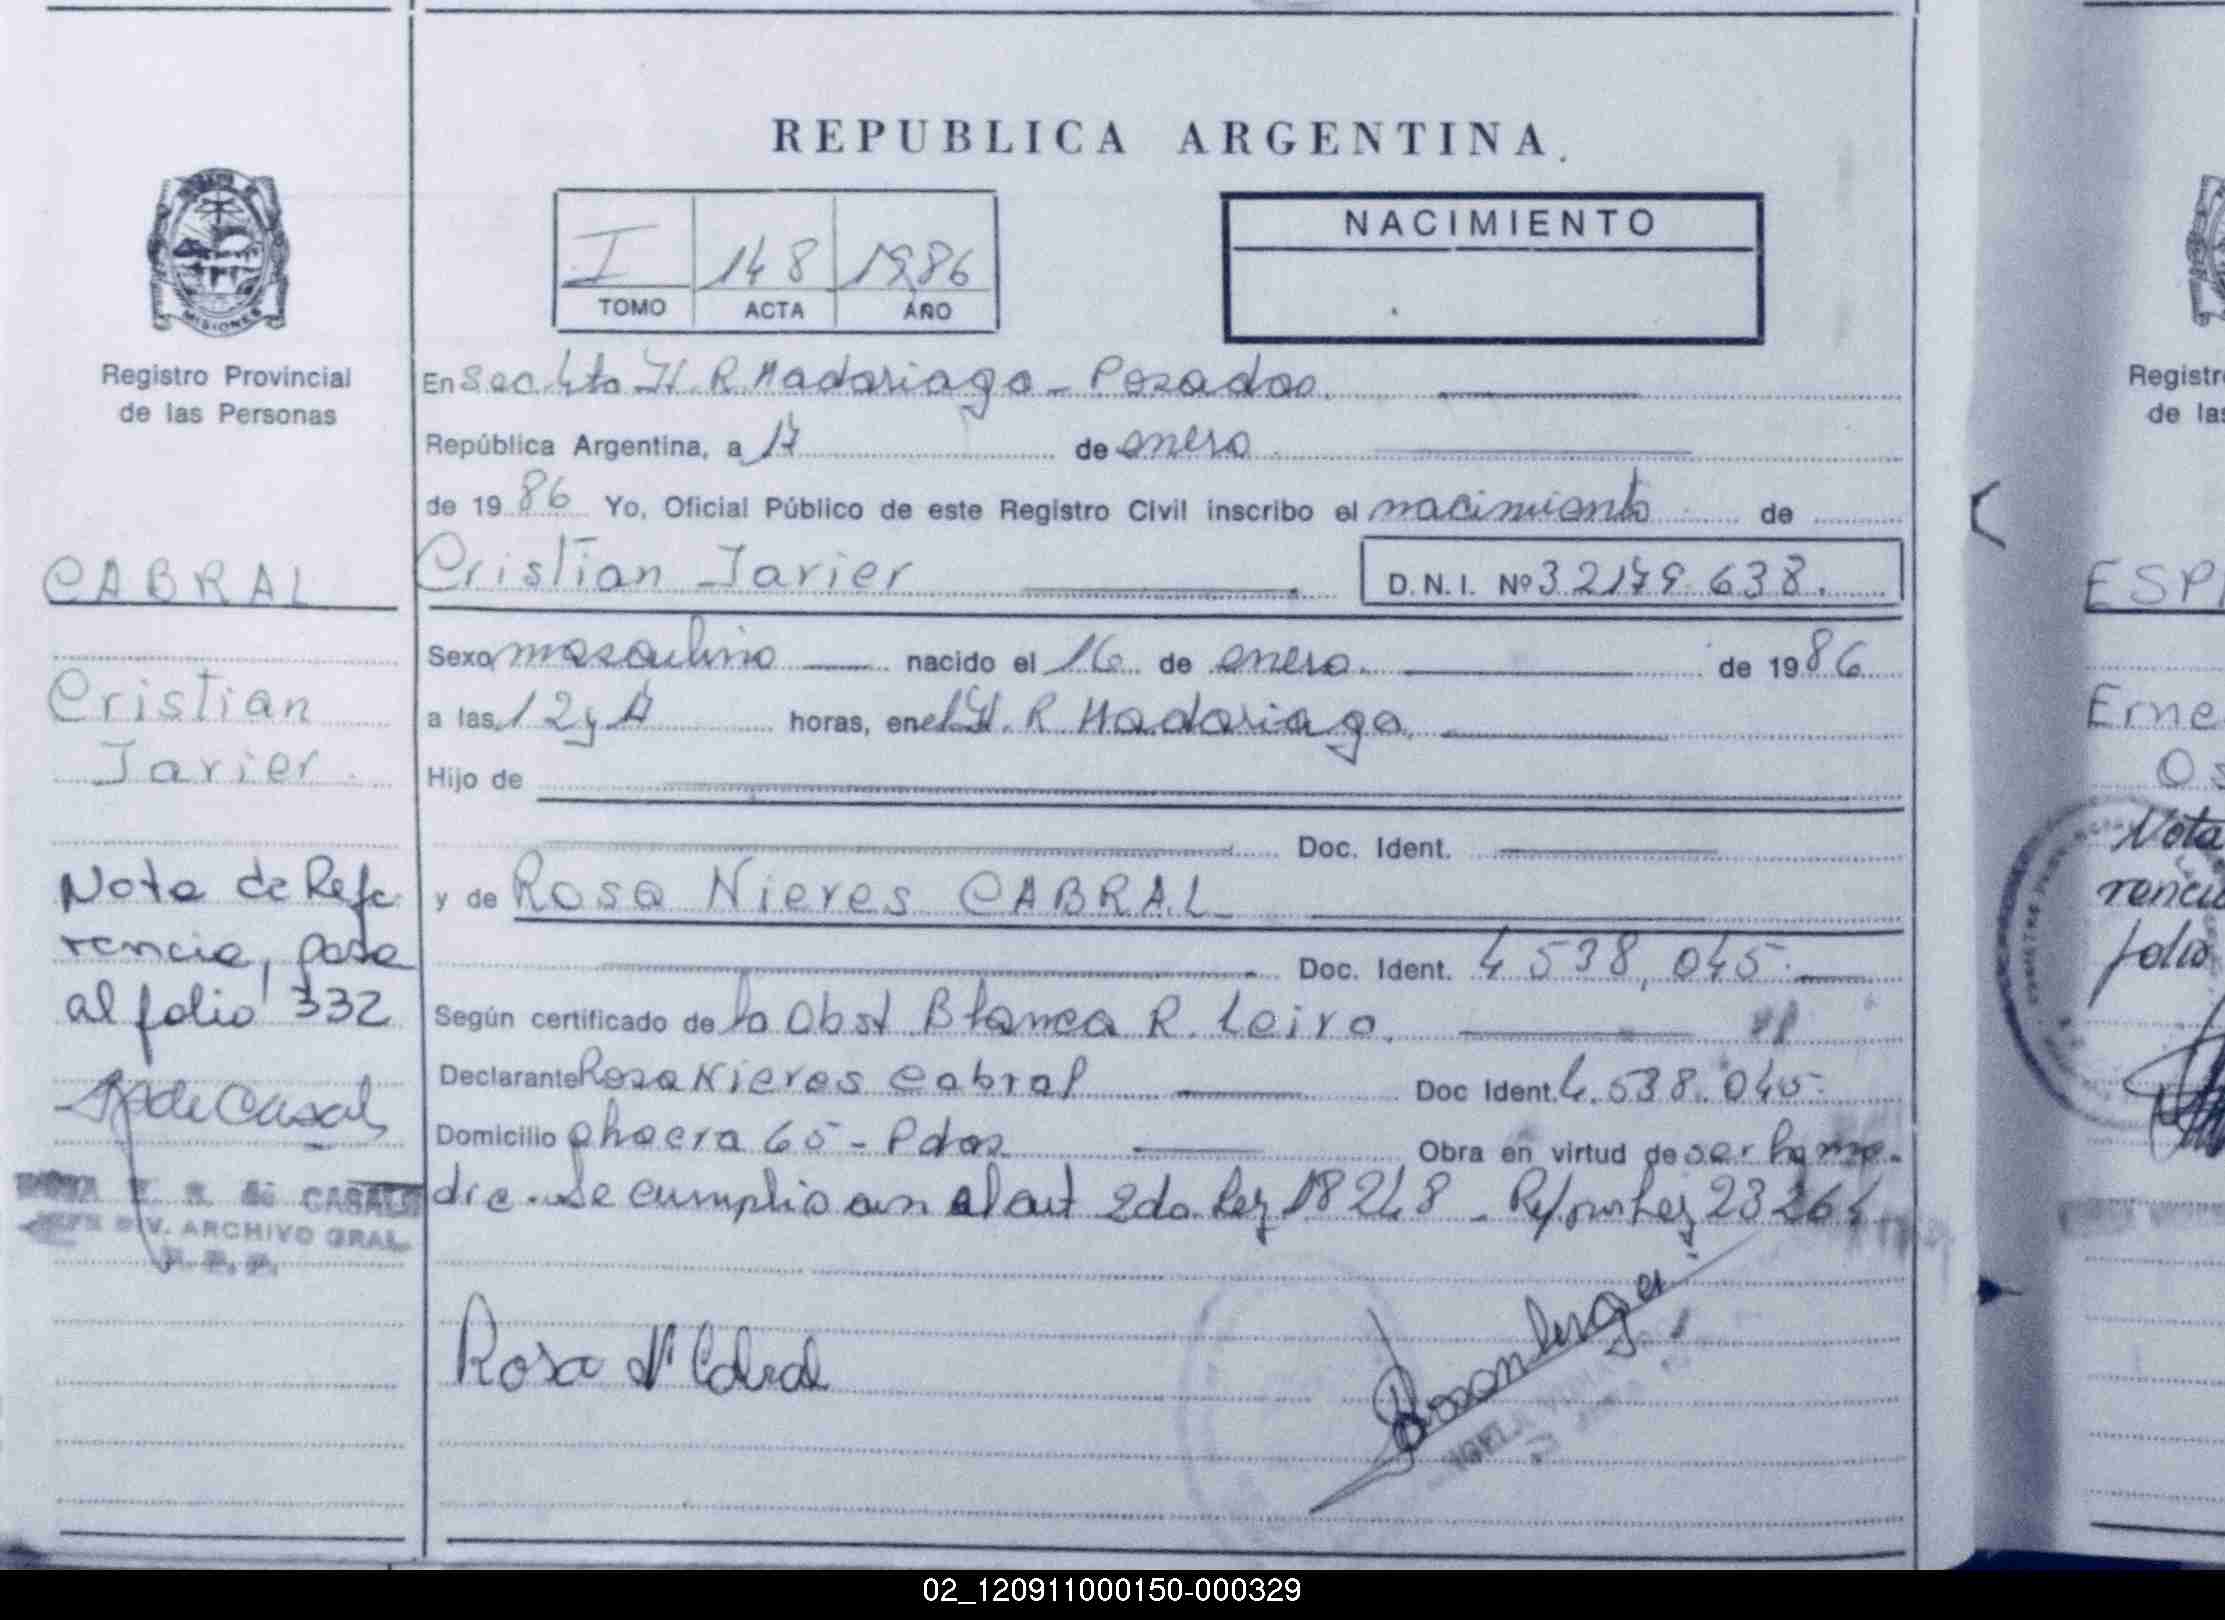 REPUBLICA ARGENTINA.
MISIONES
Registro Provincial
de las Personas
I 148 1986
TOMO ACTA AÑO
NACIMIENTO
En Sec 4ta H. R Madariaga - Posadas.
República Argentina, a 17 de enero
de 1986 Yo, Oficial Público de este Registro Civil inscribo el nacimiento de
Cristian Javier D.N.I. Nº 32179.638.
Sexo masculino nacido el 16 de enero. de 1986
a las 12 y horas, en el H. R. Madariaga.
Hijo de
Doc. Ident.
y de Rosa Nieves CABRAL
Doc. Ident. 4.538.045.
Según certificado de la Obst Blanca R. Leiva.
Declarante Rosa Nieves Cabral Doc Ident. 4.538.045.
Domicilio chacra 65 - Pdas Obra en virtud de ser la ma-
dre. Se cumplio con el art 2do. Ley 18248 - Ref por Ley 23264
Rosa N Cabral
CABRAL
Cristian
Javier.
Nota de Refe
rencia, pasa
al folio 332
de Casals
de CASALS
JEFE DIV. ARCHIVO GRAL.
R. P. P.
Registr
de las
ESPI
Erne
Os
Nota
rencia
folio
02_120911000150-000329